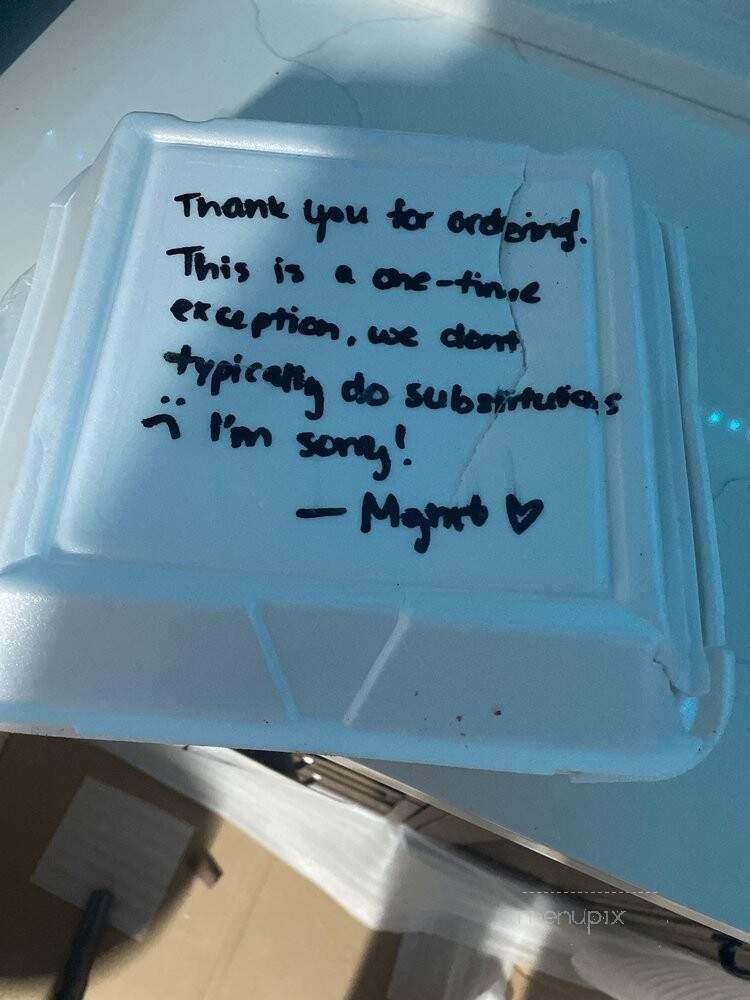 Thank you for ordering!
This is a one-time
exception, we dont
typically do substitutions
:( I'm sorry!
— Mgmt ♡
menupix